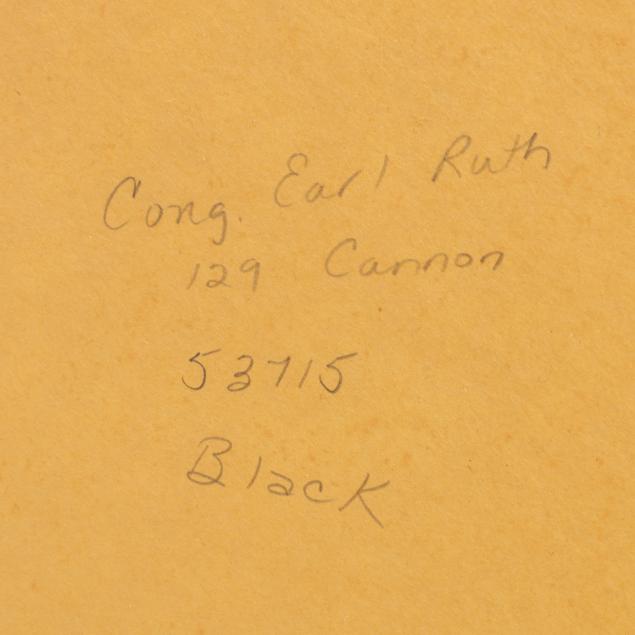 Cong. Earl Ruth
129 Cannon
53715
Black